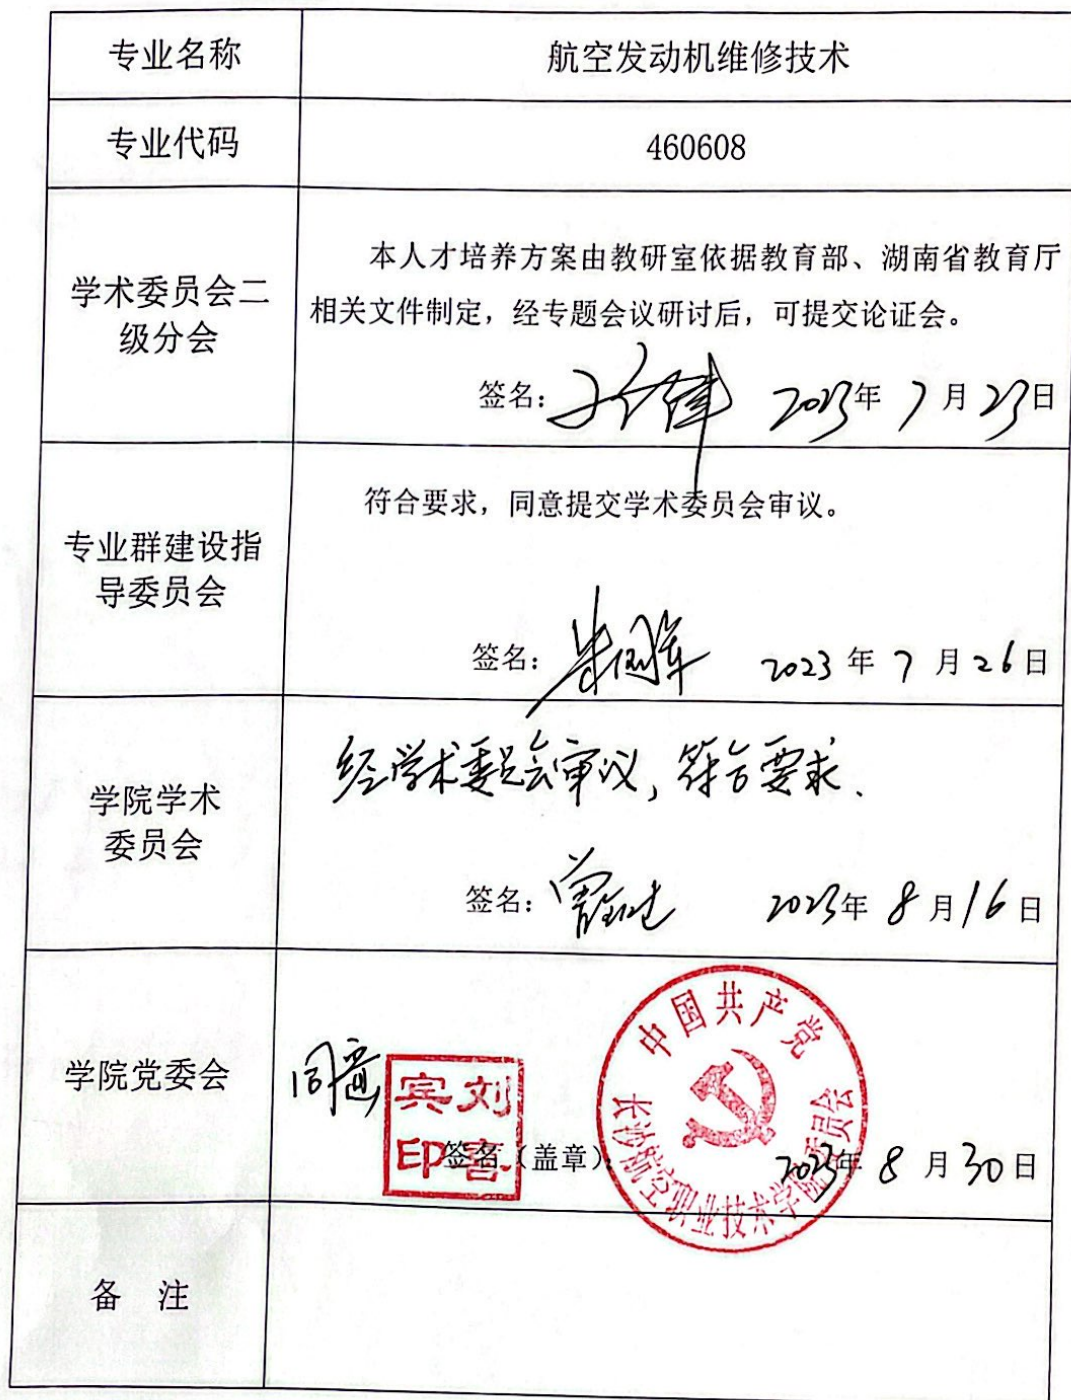 专业名称 航空发动机维修技术
专业代码 460608
学术委员会二
级分会
本人才培养方案由教研室依据教育部、湖南省教育厅
相关文件制定，经专题会议研讨后，可提交论证会。
签名： 2023年7月23日
专业群建设指
导委员会
符合要求，同意提交学术委员会审议。
签名： 2023年7月26日
学院学术
委员会
经学术委员会审议，符合要求.
签名： 2023年8月16日
学院党委会
同意
刘喜宾印
中国共产党长沙航空职业技术学院委员会
签名（盖章）： 2023年8月30日
备 注